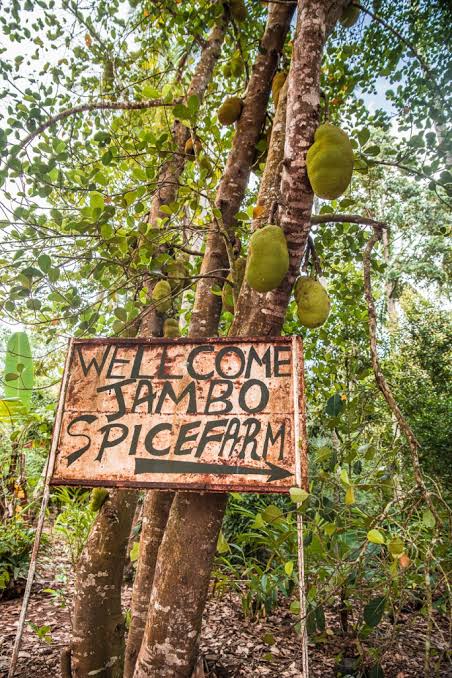 WELLCOME
JAMBO
SPICEFARM